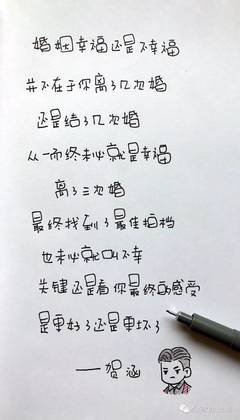 婚姻幸福还是不幸福
并不在于你离了几次婚
还是结了几次婚
从一而终未必就是幸福
离了三次婚
最终找到了最佳拍档
也未必就叫不幸
关键还是看你最终的感受
是更好了还是更坏了
——贺涵